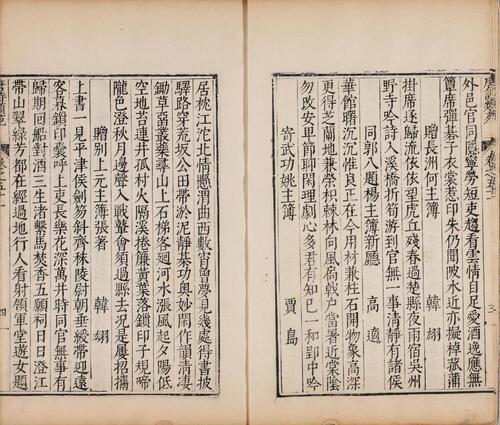 外邑官同隱寧勞短吏趨看雲情自足愛酒逸應無
簟席彈碁子衣裳惹印朱仍聞陂水近亦擬棹菰蒲
贈長洲何主簿　韓翃
掛席逐歸流依依望虎丘殘春過楚縣夜雨宿吳州
野寺吟詩入溪橋折筍游到官無一事清靜有諸侯
同郭八題楊主簿新廳　高適
華館曙沉沉惟良正在今用材兼柱石開物象高深
更得芝蘭地兼榮枳棘林向風扃戟戶當署近棠陰
勿改安卑節聊閑理劇心多君有知已一和郢中吟
寄武功姚主簿　賈島
居枕江沱北情懸渭曲西數宵曾夢見幾處得書披
驛路穿荒坂公田帶淤泥靜棊功奧妙閑作韻清淒
鋤草留叢藥尋山上石梯客廻河水漲風起夕陽低
空地苔連井孤村火隔溪捲簾黃葉落鎖印子規啼
隴色澄秋月邊聲入戰鼙會須過縣去況是屢招攜
贈別上元主簿張著　韓翃
上書一見平津侯劒笏斜齊秣陵尉朝垂綬帶迎遠
客暮鎖印囊呼上吏長樂花深萬井時同官無事有
歸期回船對酒三生渚繫馬焚香五願祠日日澄江
帶山翠綠芳都在經過地行人看射領軍堂遊女題